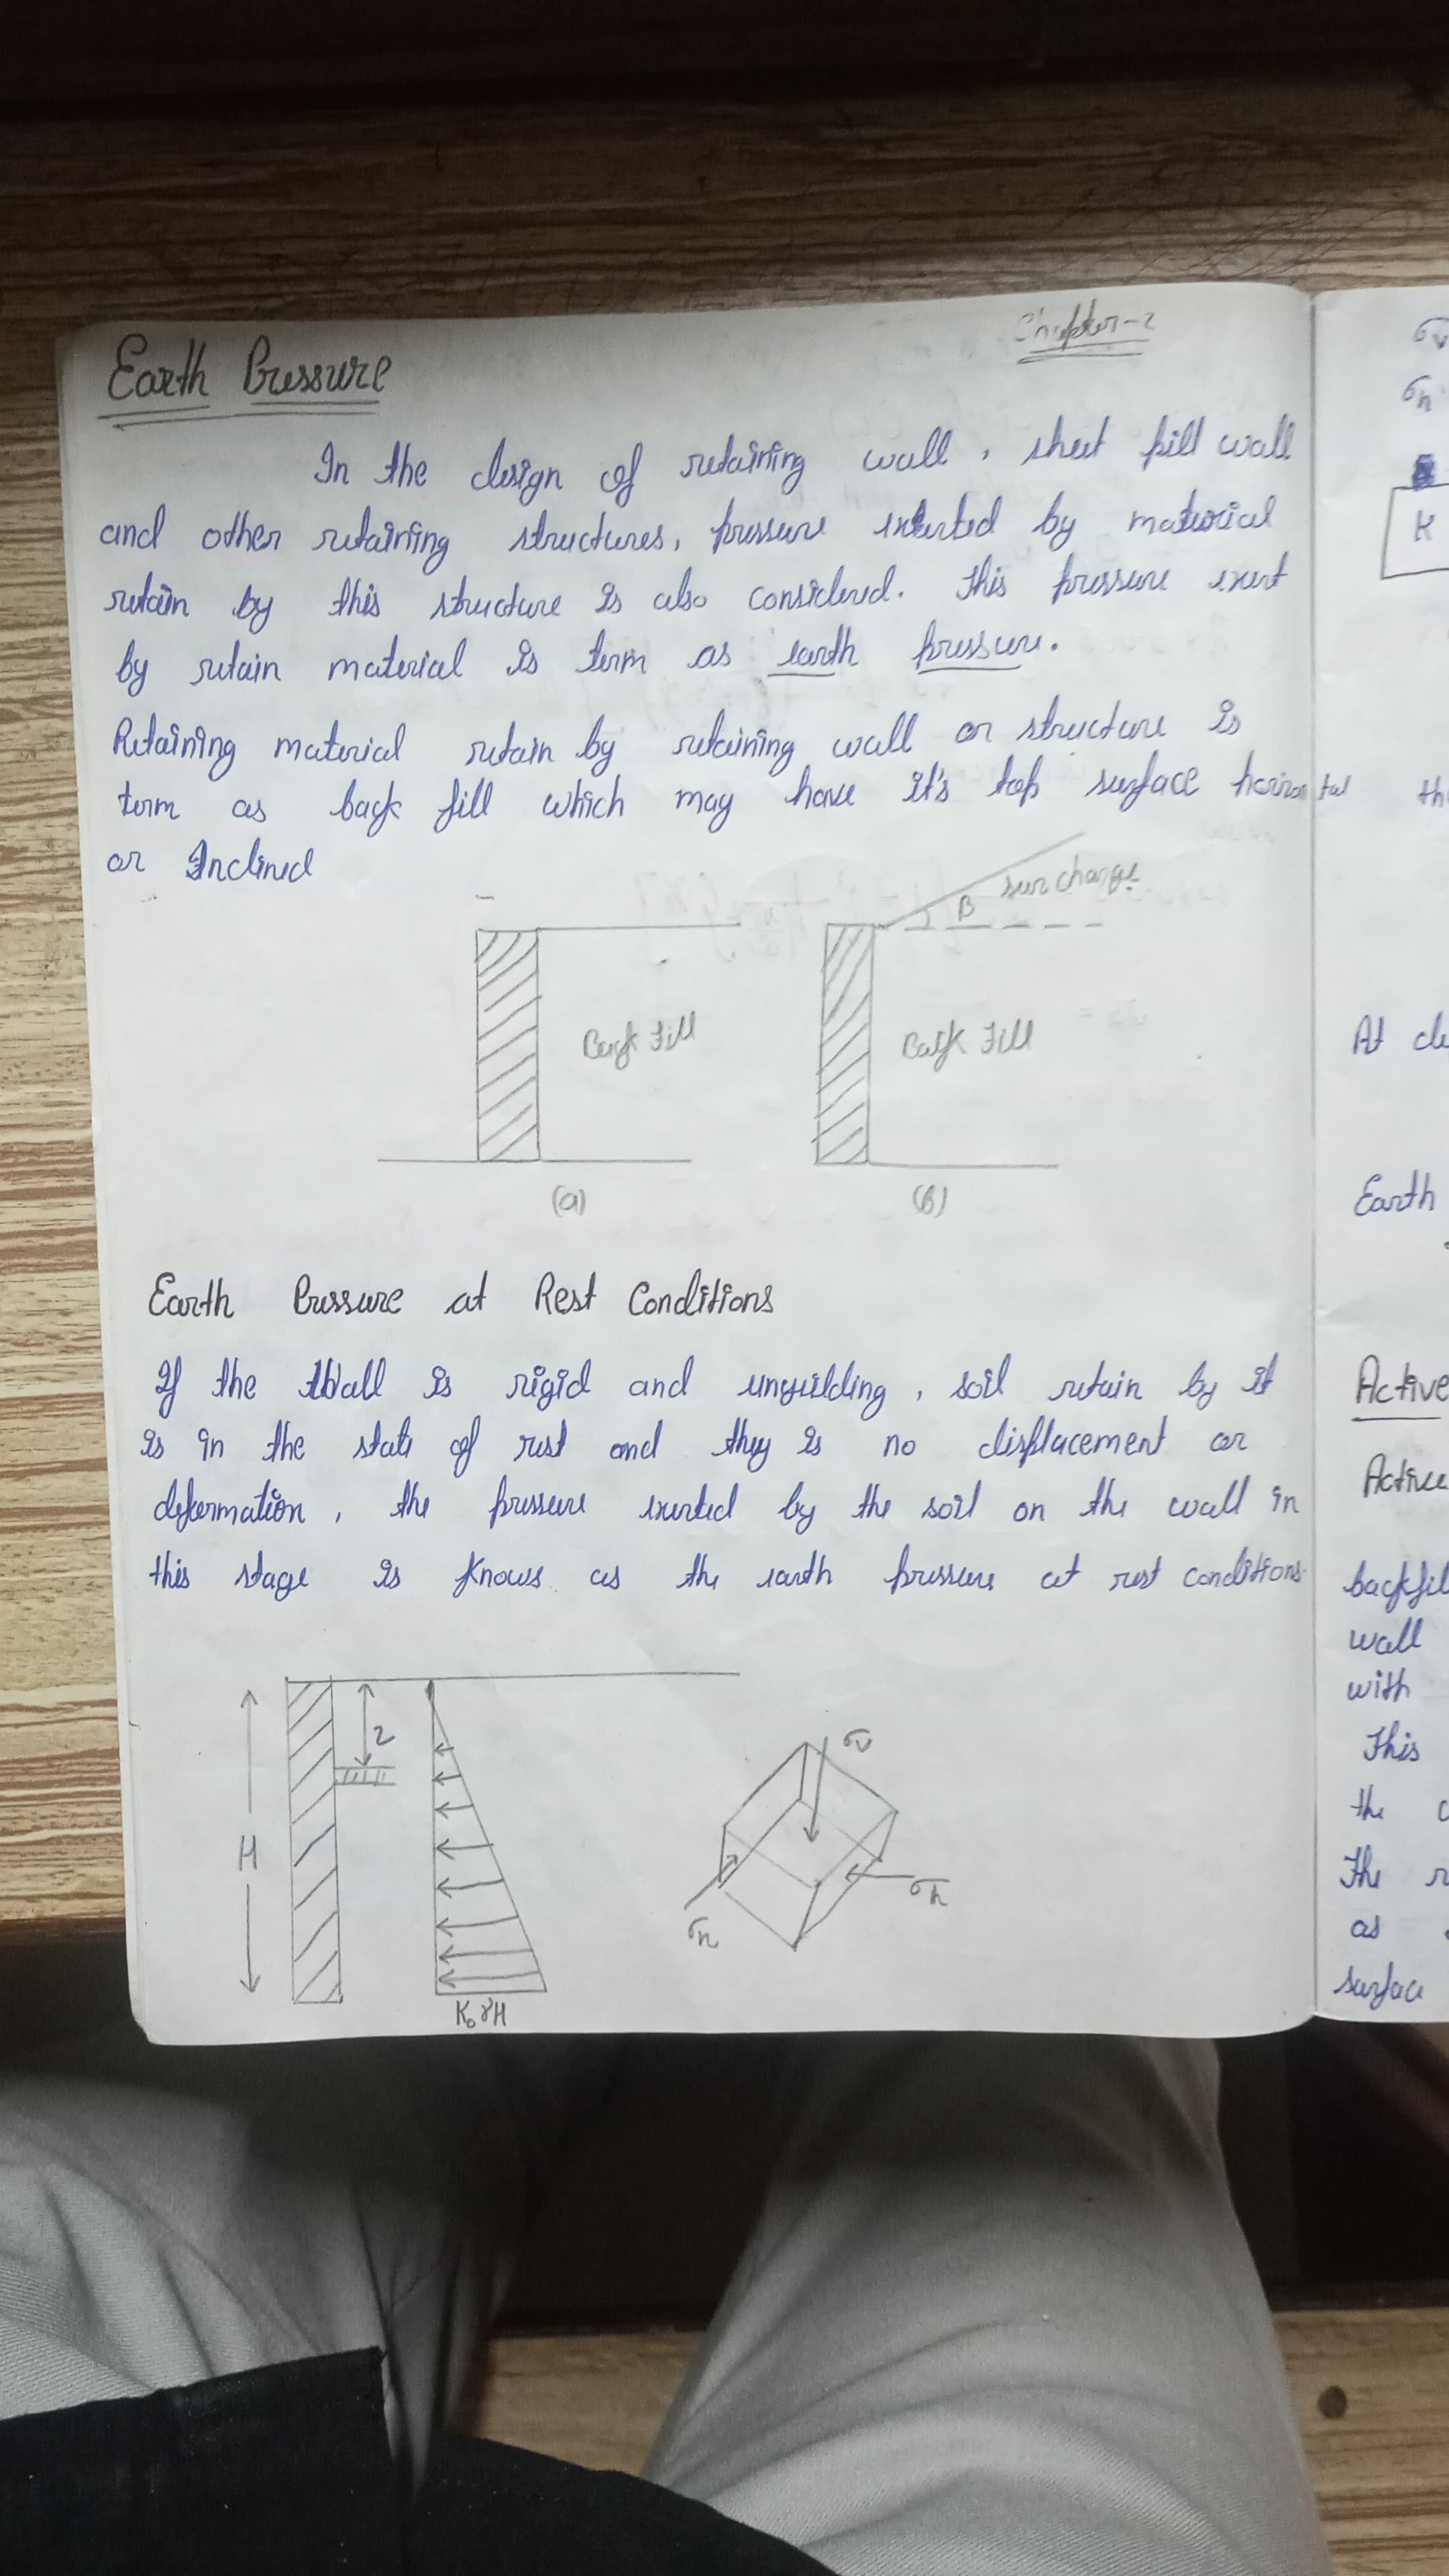 Chapter-2
Earth Pressure
In the design of retaining wall, sheet pill wall
and other retaining structures, pressure exerted by material
retain by this structure is also considered. This pressure exert
by retain material is term as earth pressure.
Retaining material retain by retaining wall or structure is
term as back fill which may have it's top surface horizontal
or Inclined
surcharge
B
Back Fill
Back Fill
(a)
(b)
Earth Pressure at Rest Conditions
If the Wall is rigid and unyuilding, soil retain by it
is in the state of rest and they is no displacement or
deformation, the pressure exerted by the soil on the wall in
this stage is Knows as the earth pressure at rest conditions.
Z
H
K₀γH
σv
σh
σh
σv
σh
K
th
At de
Earth
Active
Active
backfil
wall
with
This
the
The
as
surface